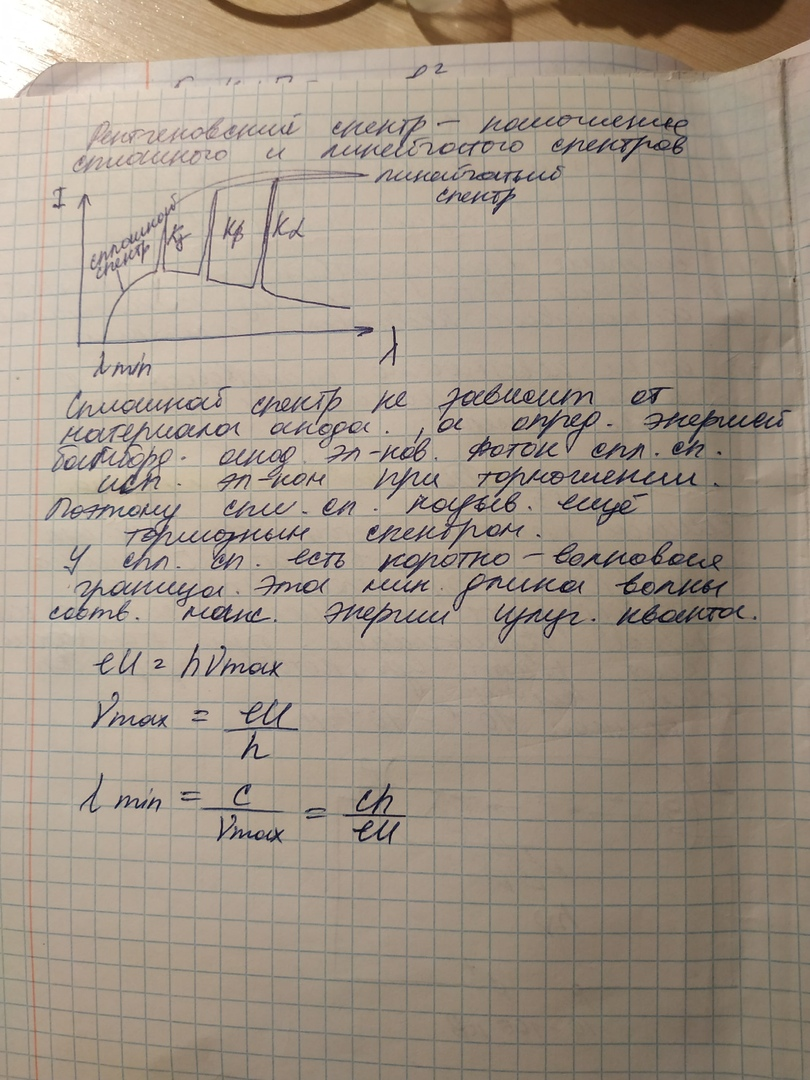 Рентгеновский спектр – наложение
сплошного и линейчатого спектров
I
сплошной
спектр
Kγ
Kβ
Kα
линейчатый
спектр
λmin
λ
Сплошной спектр не зависит от
материала анода, а опред. энергией
бомбард. анод эл-нов. Фотон спл. сп.
исп. эл-ном при торможении.
Поэтому спл. сп. назыв. ещё
тормозным спектром.
У спл. сп. есть коротко-волновая
граница. Эта мин. длина волны
соотв. макс. энергии излуч. кванта.
eU = hνmax
νmax = eU/h
λ min = c/νmax = ch/eU